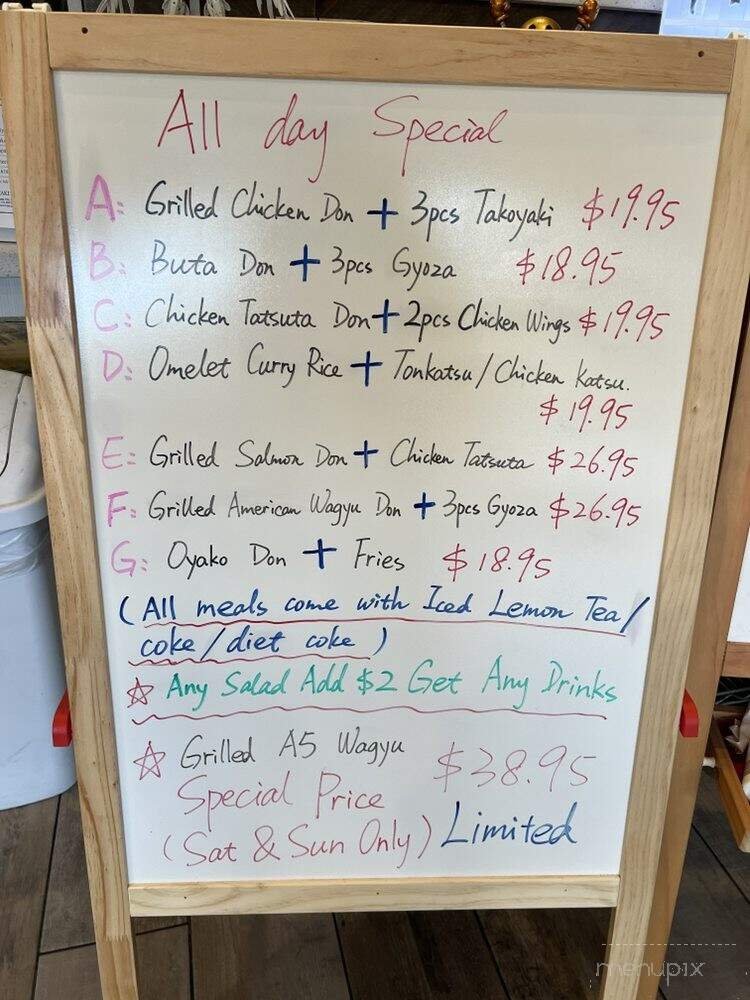 All day Special
A: Grilled Chicken Don + 3pcs Takoyaki $19.95
B: Buta Don + 3pcs Gyoza $18.95
C: Chicken Tatsuta Don + 2pcs Chicken Wings $19.95
D: Omelet Curry Rice + Tonkatsu / Chicken Katsu.
$19.95
E: Grilled Salmon Don + Chicken Tatsuta $26.95
F: Grilled American Wagyu Don + 3pcs Gyoza $26.95
G: Oyako Don + Fries $18.95
(All meals come with Iced Lemon Tea/
coke/diet coke)
☆ Any Salad Add $2 Get Any Drinks
☆ Grilled A5 Wagyu $38.95
Special Price
(Sat & Sun Only) Limited
menupix